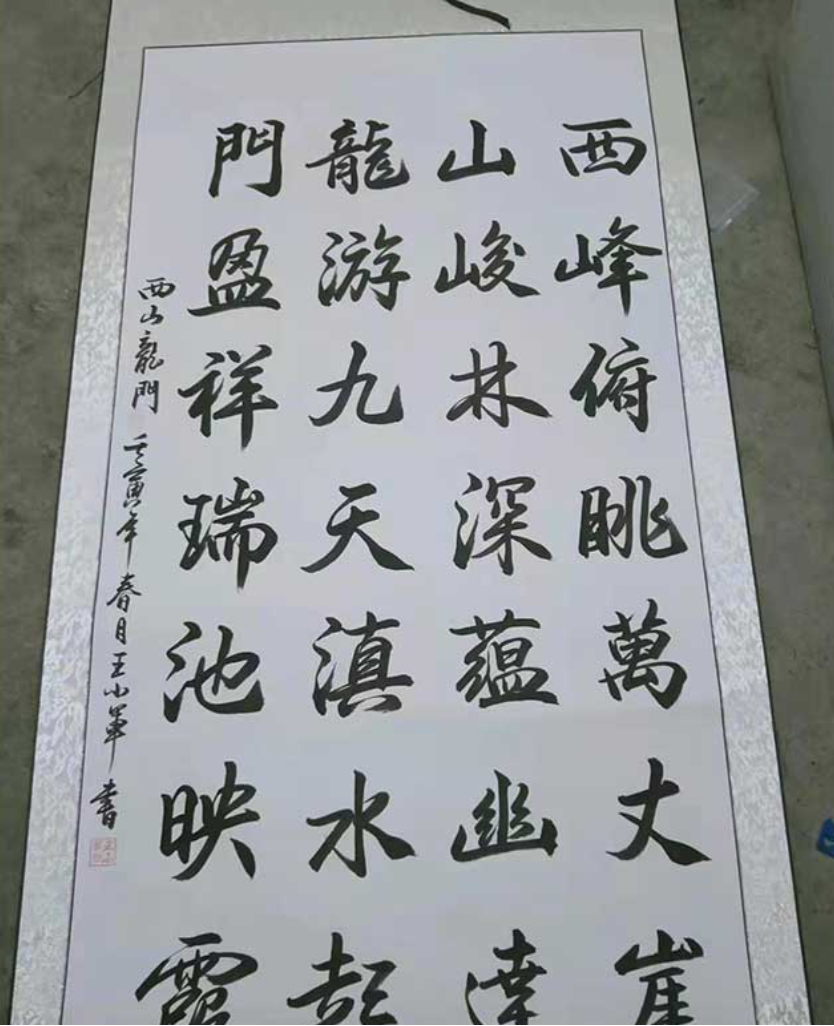 西峰俯眺萬丈崖
山峻林深蘊幽
龍游九天滇水
門盈祥瑞池映霞
西山龍門 壬寅年春月王小軍書